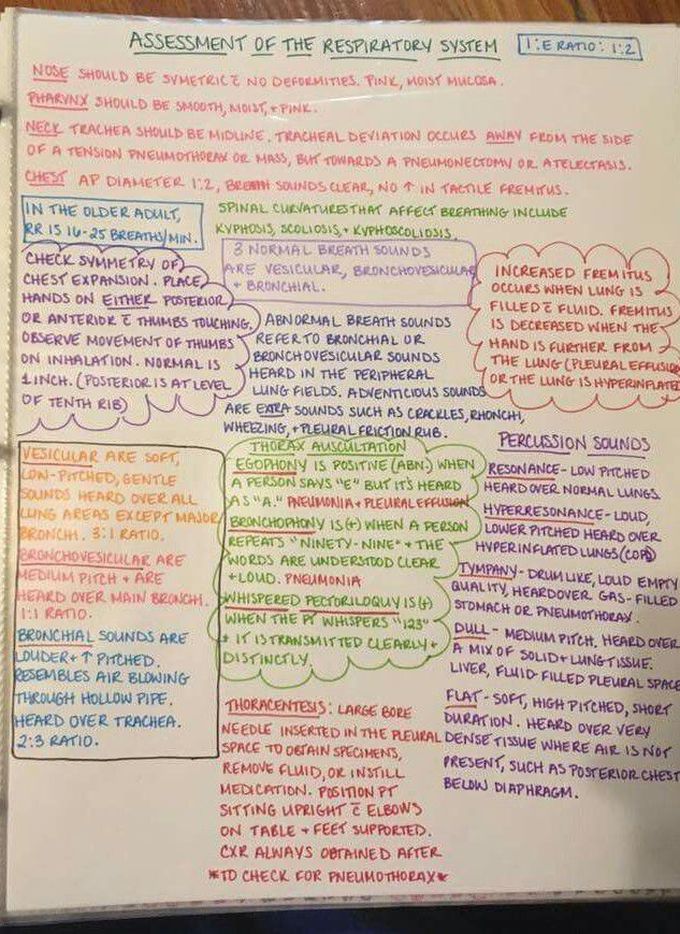 ASSESSMENT OF THE RESPIRATORY SYSTEM
I:E RATIO: 1:2
NOSE SHOULD BE SYMETRIC c̄ NO DEFORMITIES. PINK, MOIST MUCOSA.
PHARYNX SHOULD BE SMOOTH, MOIST, + PINK.
NECK TRACHEA SHOULD BE MIDLINE. TRACHEAL DEVIATION OCCURS AWAY FROM THE SIDE
OF A TENSION PNEUMOTHORAX OR MASS, BUT TOWARDS A PNEUMONECTOMY OR ATELECTASIS.
CHEST AP DIAMETER 1:2, BREATH SOUNDS CLEAR, NO ↑ IN TACTILE FREMITUS.
IN THE OLDER ADULT,
RR IS 16-25 BREATHS/MIN.
SPINAL CURVATURES THAT AFFECT BREATHING INCLUDE
KYPHOSIS, SCOLIOSIS, + KYPHOSCOLIOSIS.
CHECK SYMMETRY OF
CHEST EXPANSION. PLACE
HANDS ON EITHER POSTERIOR
OR ANTERIOR c̄ THUMBS TOUCHING.
OBSERVE MOVEMENT OF THUMBS
ON INHALATION. NORMAL IS
1 INCH. (POSTERIOR IS AT LEVEL
OF TENTH RIB)
3 NORMAL BREATH SOUNDS
ARE VESICULAR, BRONCHOVESICULAR
+ BRONCHIAL.
INCREASED FREMITUS
OCCURS WHEN LUNG IS
FILLED c̄ FLUID. FREMITUS
IS DECREASED WHEN THE
HAND IS FURTHER FROM
THE LUNG (PLEURAL EFFUSION
OR THE LUNG IS HYPERINFLATED
ABNORMAL BREATH SOUNDS
REFER TO BRONCHIAL OR
BRONCHOVESICULAR SOUNDS
HEARD IN THE PERIPHERAL
LUNG FIELDS. ADVENTICIOUS SOUNDS
ARE EXTRA SOUNDS SUCH AS CRACKLES, RHONCHI,
WHEEZING, + PLEURAL FRICTION RUB.
VESICULAR ARE SOFT,
LOW-PITCHED, GENTLE
SOUNDS HEARD OVER ALL
LUNG AREAS EXCEPT MAJOR
BRONCHI. 3:1 RATIO.
BRONCHOVESICULAR ARE
MEDIUM PITCH + ARE
HEARD OVER MAIN BRONCHI.
1:1 RATIO.
BRONCHIAL SOUNDS ARE
LOUDER + ↑ PITCHED.
RESEMBLES AIR BLOWING
THROUGH HOLLOW PIPE.
HEARD OVER TRACHEA.
2:3 RATIO.
THORAX AUSCULTATION
EGOPHONY IS POSITIVE (ABN.) WHEN
A PERSON SAYS "E" BUT IT'S HEARD
AS "A." PNEUMONIA + PLEURAL EFFUSION
BRONCHOPHONY IS (+) WHEN A PERSON
REPEATS "NINETY-NINE" + THE
WORDS ARE UNDERSTOOD CLEAR
+ LOUD. PNEUMONIA
WHISPERED PECTORILOQUY IS (+)
WHEN THE PT WHISPERS "123"
+ IT IS TRANSMITTED CLEARLY +
DISTINCTLY.
THORACENTESIS: LARGE BORE
NEEDLE INSERTED IN THE PLEURAL
SPACE TO OBTAIN SPECIMENS,
REMOVE FLUID, OR INSTILL
MEDICATION. POSITION PT
SITTING UPRIGHT c̄ ELBOWS
ON TABLE + FEET SUPPORTED.
CXR ALWAYS OBTAINED AFTER
*TO CHECK FOR PNEUMOTHORAX*
PERCUSSION SOUNDS
RESONANCE - LOW PITCHED
HEARD OVER NORMAL LUNGS.
HYPERRESONANCE - LOUD,
LOWER PITCHED HEARD OVER
HYPERINFLATED LUNGS (COPD)
TYMPANY - DRUMLIKE, LOUD EMPTY
QUALITY, HEARD OVER GAS-FILLED
STOMACH OR PNEUMOTHORAX.
DULL - MEDIUM PITCH. HEARD OVER
A MIX OF SOLID + LUNG TISSUE.
LIVER, FLUID-FILLED PLEURAL SPACE
FLAT - SOFT, HIGH PITCHED, SHORT
DURATION. HEARD OVER VERY
DENSE TISSUE WHERE AIR IS NOT
PRESENT, SUCH AS POSTERIOR CHEST
BELOW DIAPHRAGM.